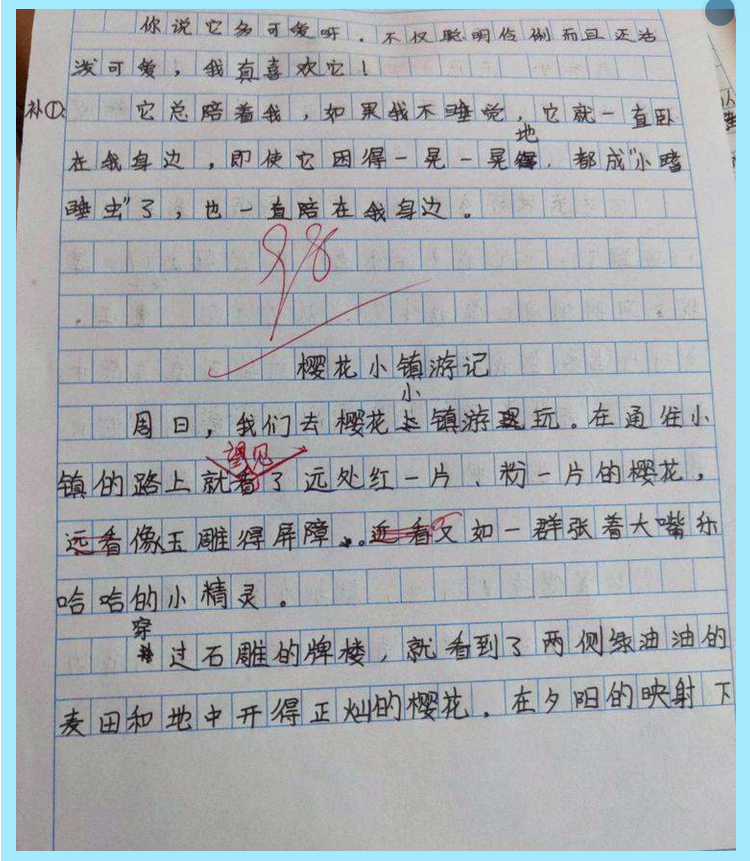 你说它多可爱呀，不仅聪明伶俐而且还活
泼可爱，我真喜欢它！
补①：它总陪着我，如果我不睡觉，它就一直卧
在我身边，即使它困得一晃一晃地，都成“小瞌
睡虫”了，也一直陪在我身边。
98
樱花小镇游记
周日，我们去樱花小镇游玩。在通往小
镇的路上就望见了远处红一片、粉一片的樱花，
远看像玉雕得屏障。近看又如一群张着大嘴乐
哈哈的小精灵。
穿过石雕的牌楼，就看到了两侧绿油油的
麦田和地中开得正灿的樱花，在夕阳的映射下